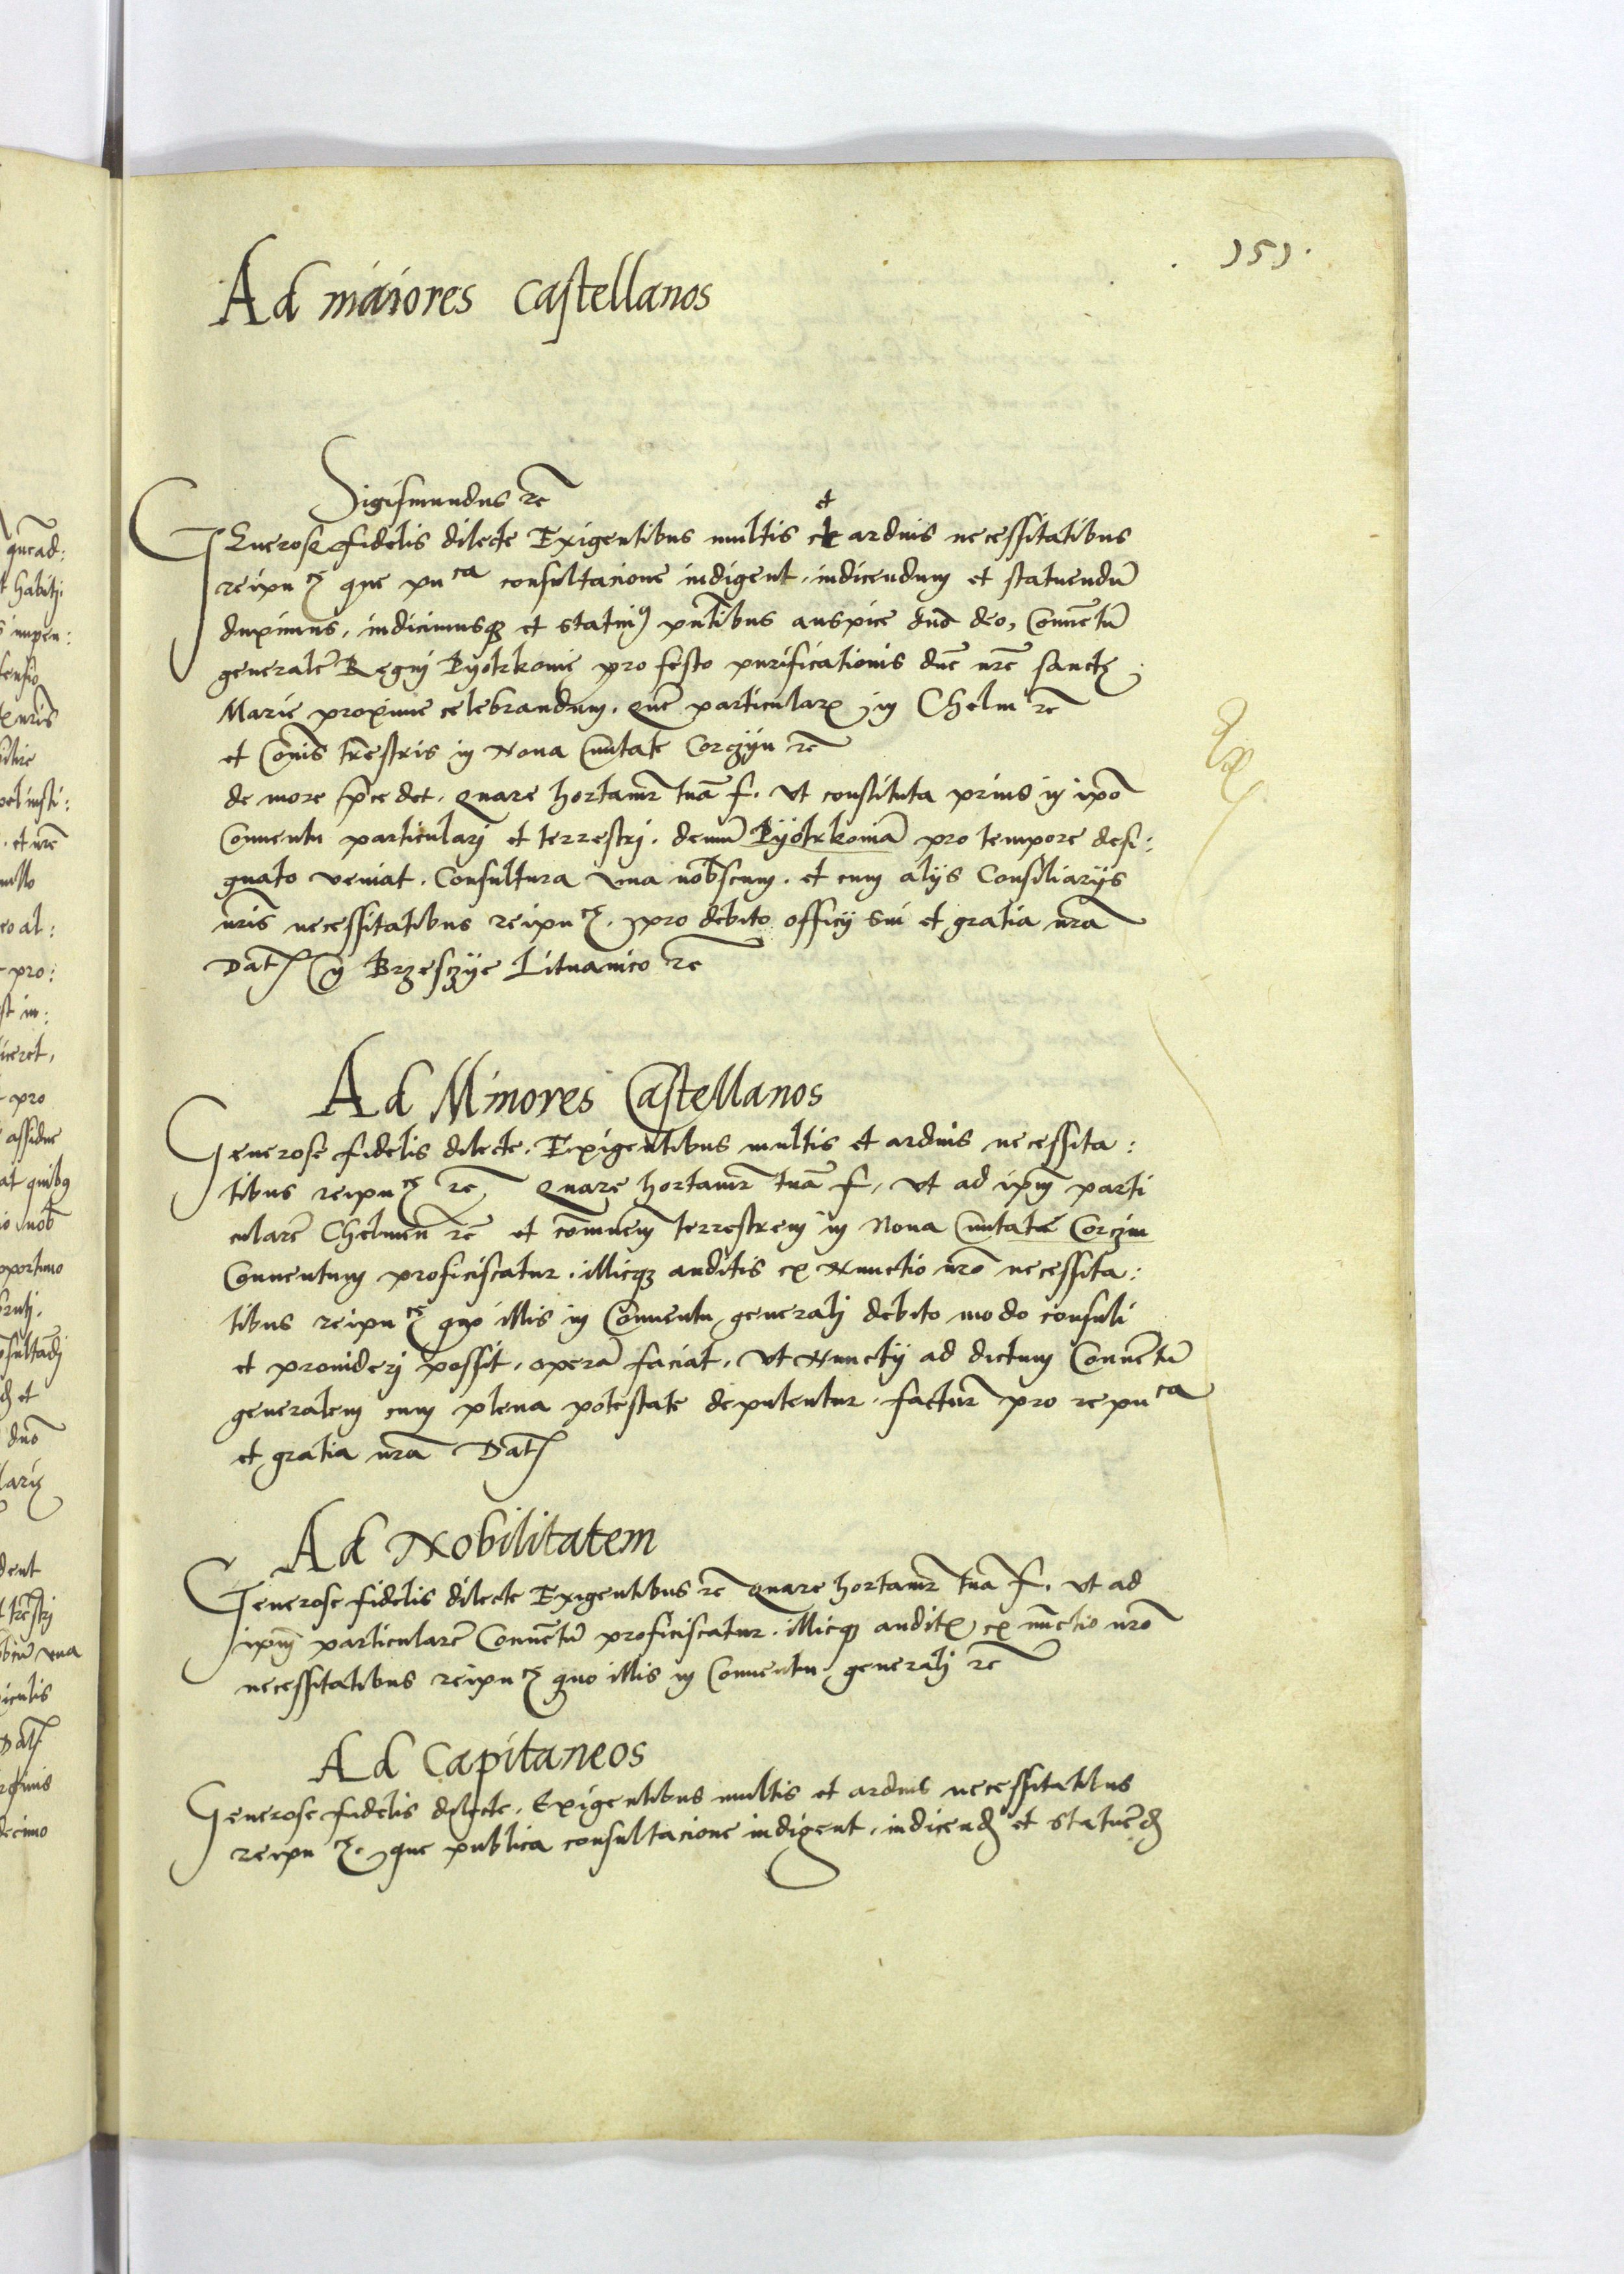 151.
Ad maiores Castellanos
Sigismundus rc̃
GEnerose fidelis dilecte Exigentibus multis et arduis necessitatibus
reipu cȩ que pu ca consultacione indigent, indicendum et statuendū
duximus, indicimusq et statui9 pn̄tibus auspice dno deo, Conuētū
generalē Regnj Pyotrkowie pro festo purificationis dnē nrē sanctȩ
Marie proxime celebrandum. quē particularꝭ in Chelm rc̃
et Cōnis trēstris in Noua Ciuitate Corczyn rc̃
de more p̄cedet. Quare hortamr̄ tuā f. vt constituta prius in ipō
Conuentu particularj et terrestrj. demū Pyotrkowiā pro tempore desi:
gnato veniat. Consultura vna nobscum. et cum alys Consiliarys
nrīs necessitatibus reipu cȩ. pro debito officy sui et gratia nrā
Dat in Brzesczye Lituanico rc̃
Ad Minores Castellanos
Generose fidelis dilecte. Exigentibus multis et arduis necessita:
tibus reipu cȩ rc̃ Quare hortamr̄ tuā f, vt ad ipm̄ parti
cularē Chelmen̄ rc̃ et cōmunem terrestrem in Noua Ciuitate Corczin
Conuentum proficiscatur. illicq auditis ex Nunctio nrō necessita:
tibus reipu cȩ quo illis in Conuentu generalj debito modo consuli
et prouiderj possit, operā faciat, vt Nunctij ad dictum Conuētū
generalem cum plena potestate deputentur. facturā pro repu ca
et gratia nrā Dat
Ad Nobilitatem
Generose fidelis dilecte Exigentibus rc̃ Quare hortamr̄ tuā f. vt ad
ipm̄ particularē Conuētū proficiscatur. illicq auditꝭ ex nūctio nrō
necessitatibus reipu cȩ quo illis in Conuentu generalj rc̃
Ad Capitaneos
Generose fidelis dilecte. Exigentibus multis et arduis necessitatibus
reipu cȩ. que publica consultacione indigent, indicend et statuēd